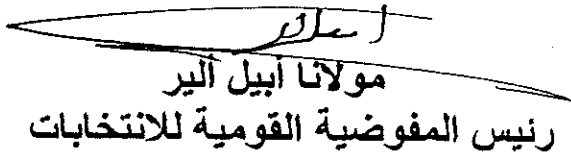 مولانا أبيل ألير
رئيس المفوضية القومية للانتخابات